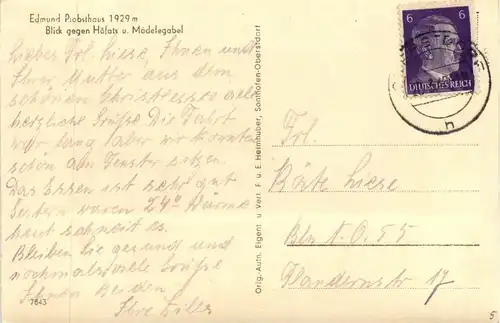 Edmund Probsthaus 1929 m
Blick gegen Höfats u. Mädelegabel
Liebes Frl. Liese, Ihnen und
Ihrer Mutter aus dem
schönen alle
herzliche Grüße Die Fahrt
war lang aber wir konnten
schön am Fenster sitzen.
Das Essen ist sehr gut
Gestern waren 24° Wärme
heut schneit es.
Bleiben Sie gesund und
nochmals viele Grüße
Ihnen beiden
Ihre
7643
Orig.-Aufn. Eigent u Verl. F u. E. Heimhuber, Sonthofen-Oberstdorf
6 6
DEUTSCHES REICH
h
Frl.
Käte Liese
Bln N.O. 55
17
5